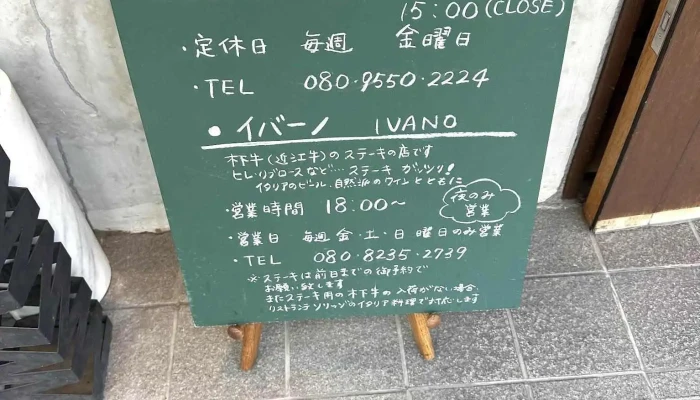 15:00(CLOSE)
・定休日 毎週 金曜日
・TEL 080・9550・2224
● イバーノ IVANO
木下牛(近江牛)のステーキの店です
ヒレ・リブロースなど…ステーキ ガッツリ!
イタリアのビール、自然派のワインとともに
・営業時間 18:00〜
夜のみ
営業
・営業日 毎週 金・土・日 曜日のみ営業
・TEL 080・8235・2739
※ステーキは前日までの御予約で
お願い致します
またステーキ用の木下牛の入荷がない場合、
リストランテ ソリッゾのイタリア料理で対応します